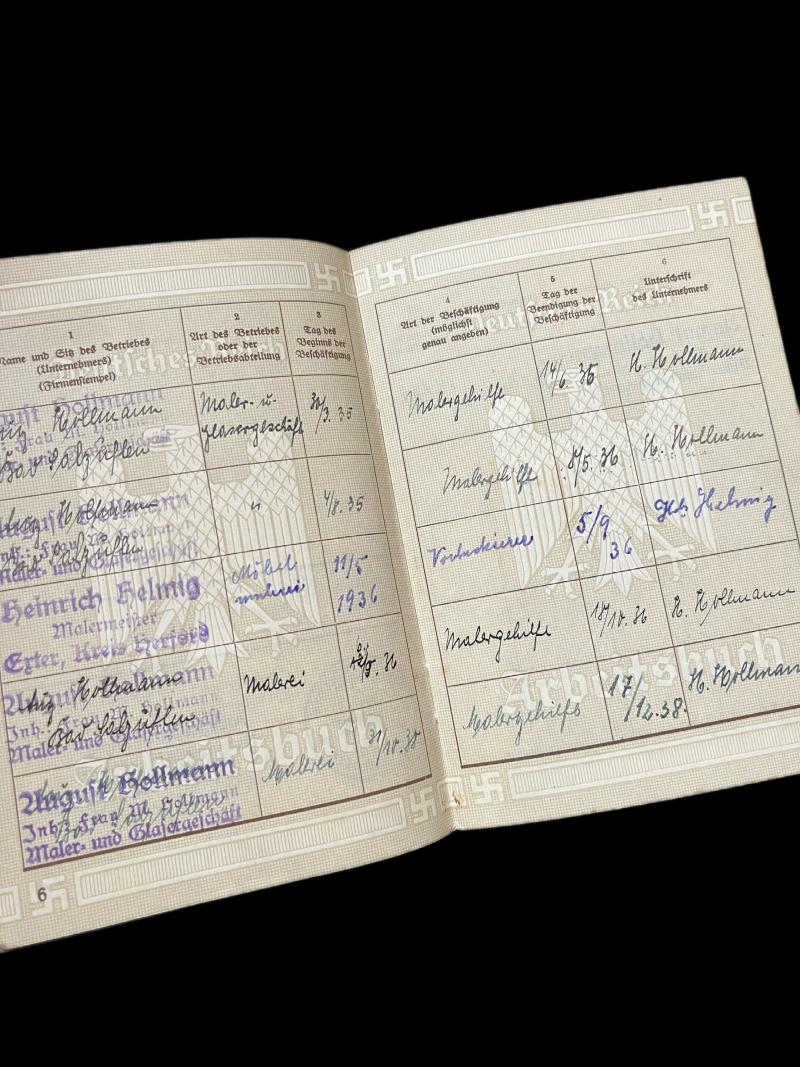 1
Name und Sitz des Betriebes
(Unternehmers)
(Firmenstempel)
2
Art des Betriebes
oder der
Betriebsabteilung
3
Tag des
Beginns der
Beschäftigung
4
Art der Beschäftigung
(möglichst
genau angeben)
5
Tag der
Beendigung der
Beschäftigung
6
Unterschrift
des Unternehmers
Hollmann
Bad Salzuflen
Maler- u.
glasergeschäft
30/3. 35
Malergehilfe
14/6. 35
H. Hollmann
August Hollmann
Maler- und Glasergeschäft
"
4/8. 35
Malergehilfe
8/5. 36
H. Hollmann
Heinrich Helmig
Malermeister
Exter, Kreis Herford
Möbel
11/5
1936
5/9
36
Helmig
August Hollmann
Inh. Frau M. Hollmann
Maler- und Glasergeschäft
Aug. Hollmann
Bad Salzuflen
Malerei
36
Malergehilfe
18/10. 36
H. Hollmann
August Hollmann
Inh. Frau M. Hollmann
Maler- und Glasergeschäft
Bad Salzuflen
Malerei
Malergehilfe
17/12.38.
H. Hollmann
Deutsches Reich
Arbeitsbuch
Deutsches Reich
Arbeitsbuch
6